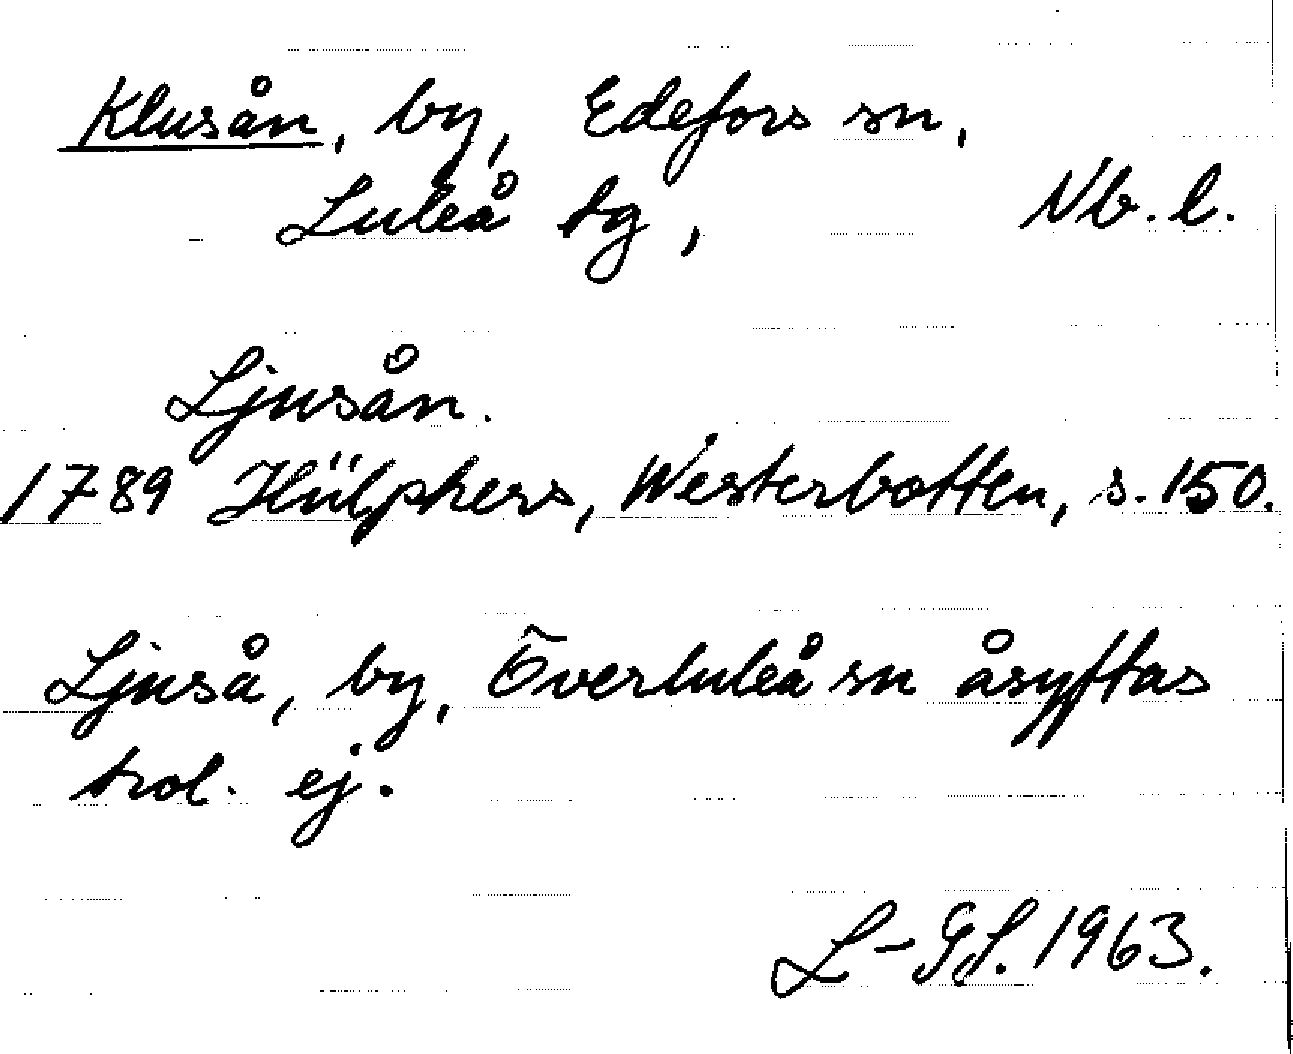 Klusån, by, Edefors sn,
Luleå tg, Nb. l.
Ljusån.
1789 Hülphers, Westerbotten, s. 150.
Ljuså, by, Överluleå sn åsyftas
trol. ej.
L-GL. 1963.